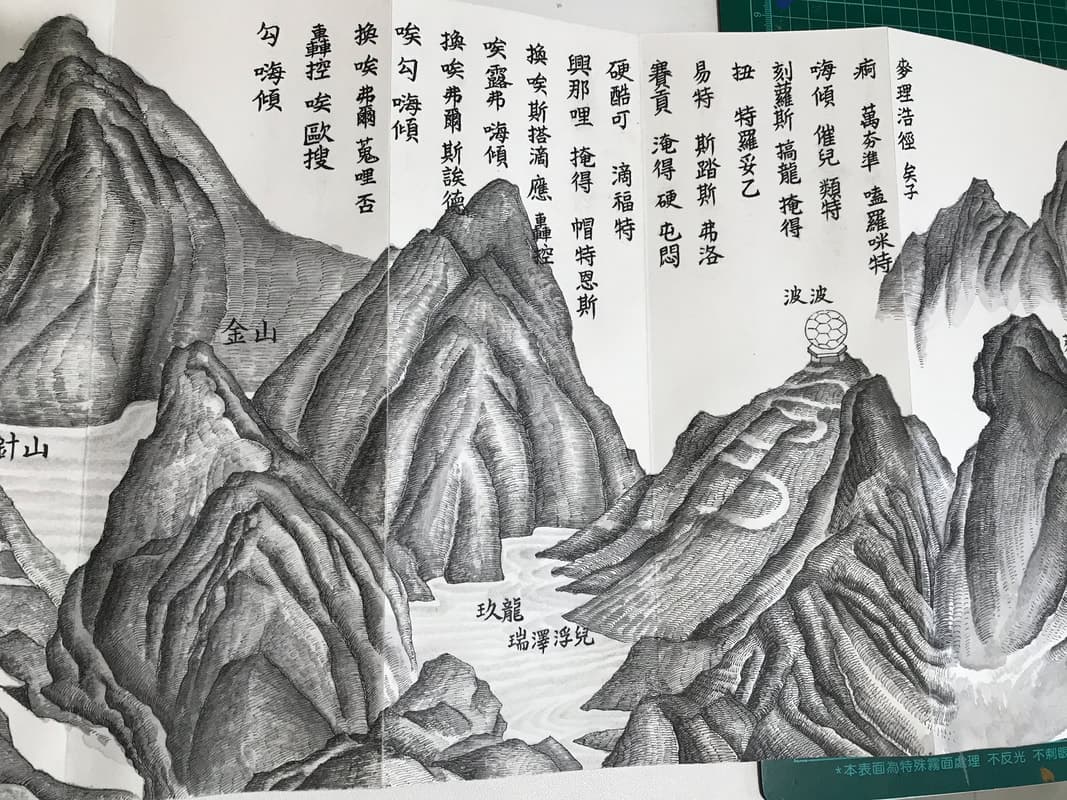 麥理浩徑 矣子
疴 萬夯準 嗑羅咪特
嗨傾 催兒 類特
刻蘿斯 搞龍 掩得
扭 特羅妥乙
易特 斯踏斯 弗洛
賽貢 淹得 硬 屯悶
硬酷可 滴福特
興那哩 掩得 帽特恩斯
換 唉 斯搭滴 應 轟控
唉 露弗 嗨傾
換 唉 弗爾 斯誒德
唉 勾 嗨傾
換 唉 弗爾 蒐哩 否
轟控 唉 歐搜
勾 嗨傾
波波
金山
針山
玖龍
瑞澤浮兒
*本表面為特殊霧面處理 不反光 不刺眼